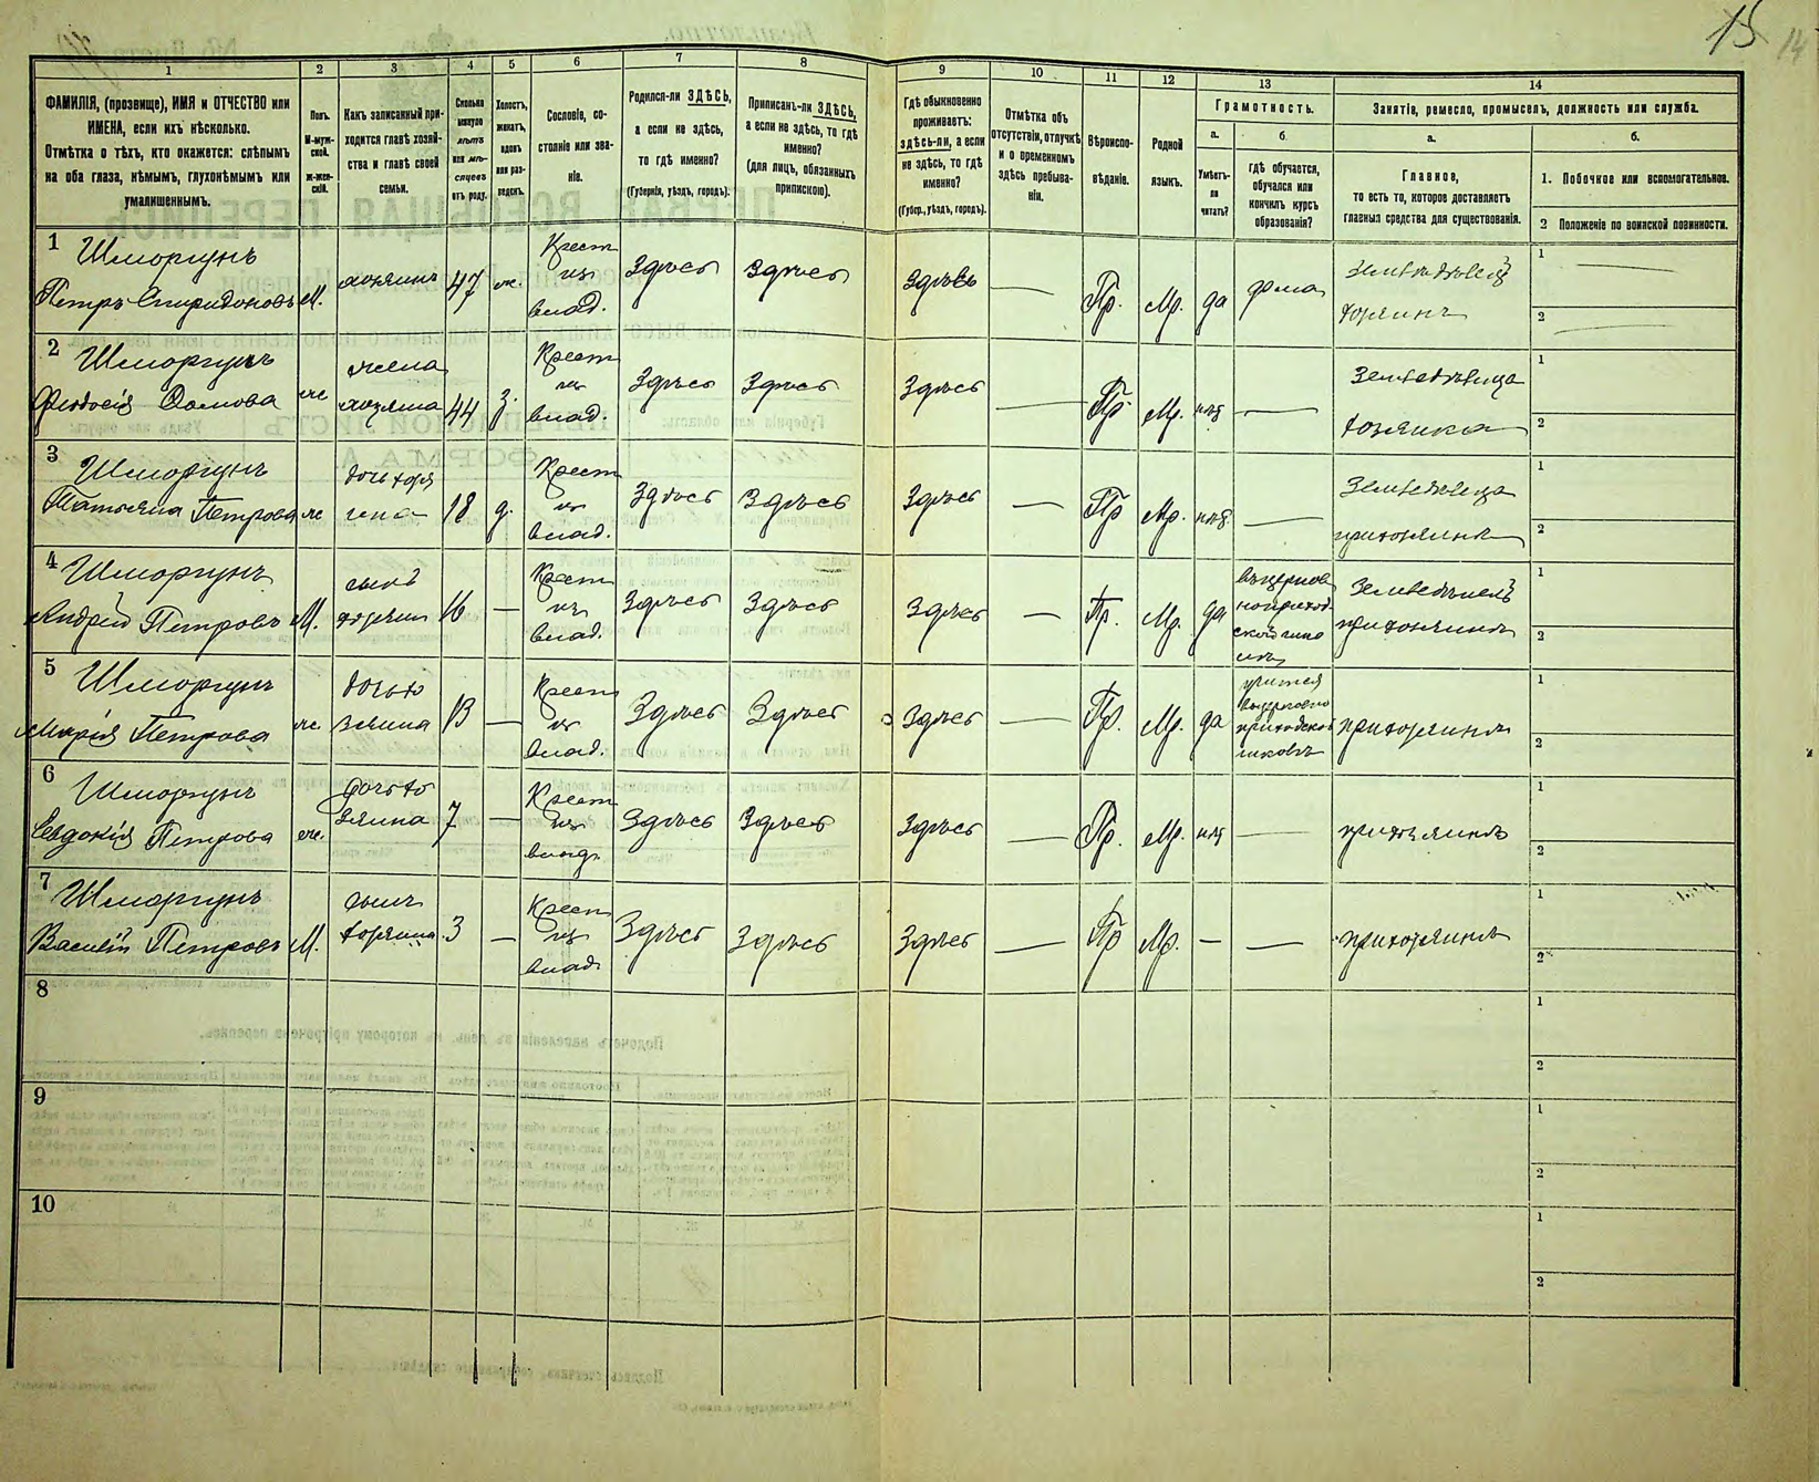 15
14
1
2
3
4
5
6
7
8
9
10
11
12
13
14
ФАМИЛІЯ, (прозвище), ИМЯ и ОТЧЕСТВО или
ИМЕНА, если ихъ нѣсколько.
Отмѣтка о тѣхъ, кто окажется: слѣпымъ
на оба глаза, нѣмымъ, глухонѣмымъ или
умалишеннымъ.
Полъ.
М-муж-
ской.
Ж-жен-
скій.
Какъ записанный при-
ходится главѣ хозяй-
ства и главѣ своей
семьи.
Сколько
минуло
лѣтъ
или мѣ-
сяцевъ
отъ роду.
Холостъ,
женатъ,
вдовъ
или раз-
веденъ.
Сословіе, со-
стояніе или зва-
ніе.
Родился-ли ЗДѢСЬ,
а если не здѣсь,
то гдѣ именно?
(Губернія, уѣздъ, городъ).
Приписанъ-ли ЗДѢСЬ,
а если не здѣсь, то гдѣ
именно?
(для лицъ, обязанныхъ
припискою).
Гдѣ обыкновенно
проживаетъ:
здѣсь-ли, а если
не здѣсь, то гдѣ
именно?
(Губер., уѣздъ, городъ).
Отмѣтка объ
отсутствіи, отлучкѣ
и о временномъ
здѣсь пребыва-
ніи.
Вѣроиспо-
вѣданіе.
Родной
языкъ.
Грамотность.
а.
Умѣетъ-
ли
читать?
б.
гдѣ обучается,
обучался или
кончилъ курсъ
образованія?
Занятіе, ремесло, промыселъ, должность или служба.
а.
Главное,
то есть то, которое доставляетъ
главныя средства для существованія.
б.
1. Побочное или вспомогательное.
2 Положеніе по воинской повинности.
1 Шморгунъ
Петръ Спиридоновъ М. хозяинъ 47 ж. Крест из влад. Здѣсь Здѣсь Здѣсь — Пр. Мр. да дома Земледѣлецъ хозяинъ 1 — 2 —
2 Шморгунъ
Феодосія жена хозяина 44 з. Крест из влад. Здѣсь Здѣсь Здѣсь — Пр. Мр. нѣт — Земледѣлица хозяйка 1 2
3 Шморгунъ
Татьяна Петрова ж дочь хозяина 18 д. Крест из влад. Здѣсь Здѣсь Здѣсь — Пр Мр. нѣт. — Земледѣлица прихозяинѣ 1 2
4 Шморгунъ
Андрей Петровъ М. сынъ хозяин 16 — Крест из влад. Здѣсь Здѣсь Здѣсь — Пр. Мр. да вцерков ноприход ской Земледѣлецъ прихозяинѣ 1 2
5 Шморгунъ
Марія Петрова ж. дочь хозяина 13 — Крест из влад. Здѣсь Здѣсь Здѣсь — Пр. Мр. да учится вцерковно приходской школѣ прихозяинѣ 1 2
6 Шморгунъ
Евдокія Петрова ж. дочь хозяина 7 — Крест из влад. Здѣсь Здѣсь Здѣсь — Пр. Мр. нѣт — прихозяинѣ 1 2
7 Шморгунъ
Василій Петровъ М. сынъ хозяина 3 — Крест из влад. Здѣсь Здѣсь Здѣсь — Пр Мр. — — прихозяинѣ 1 2
8 1 2
9 1 2
10 1 2